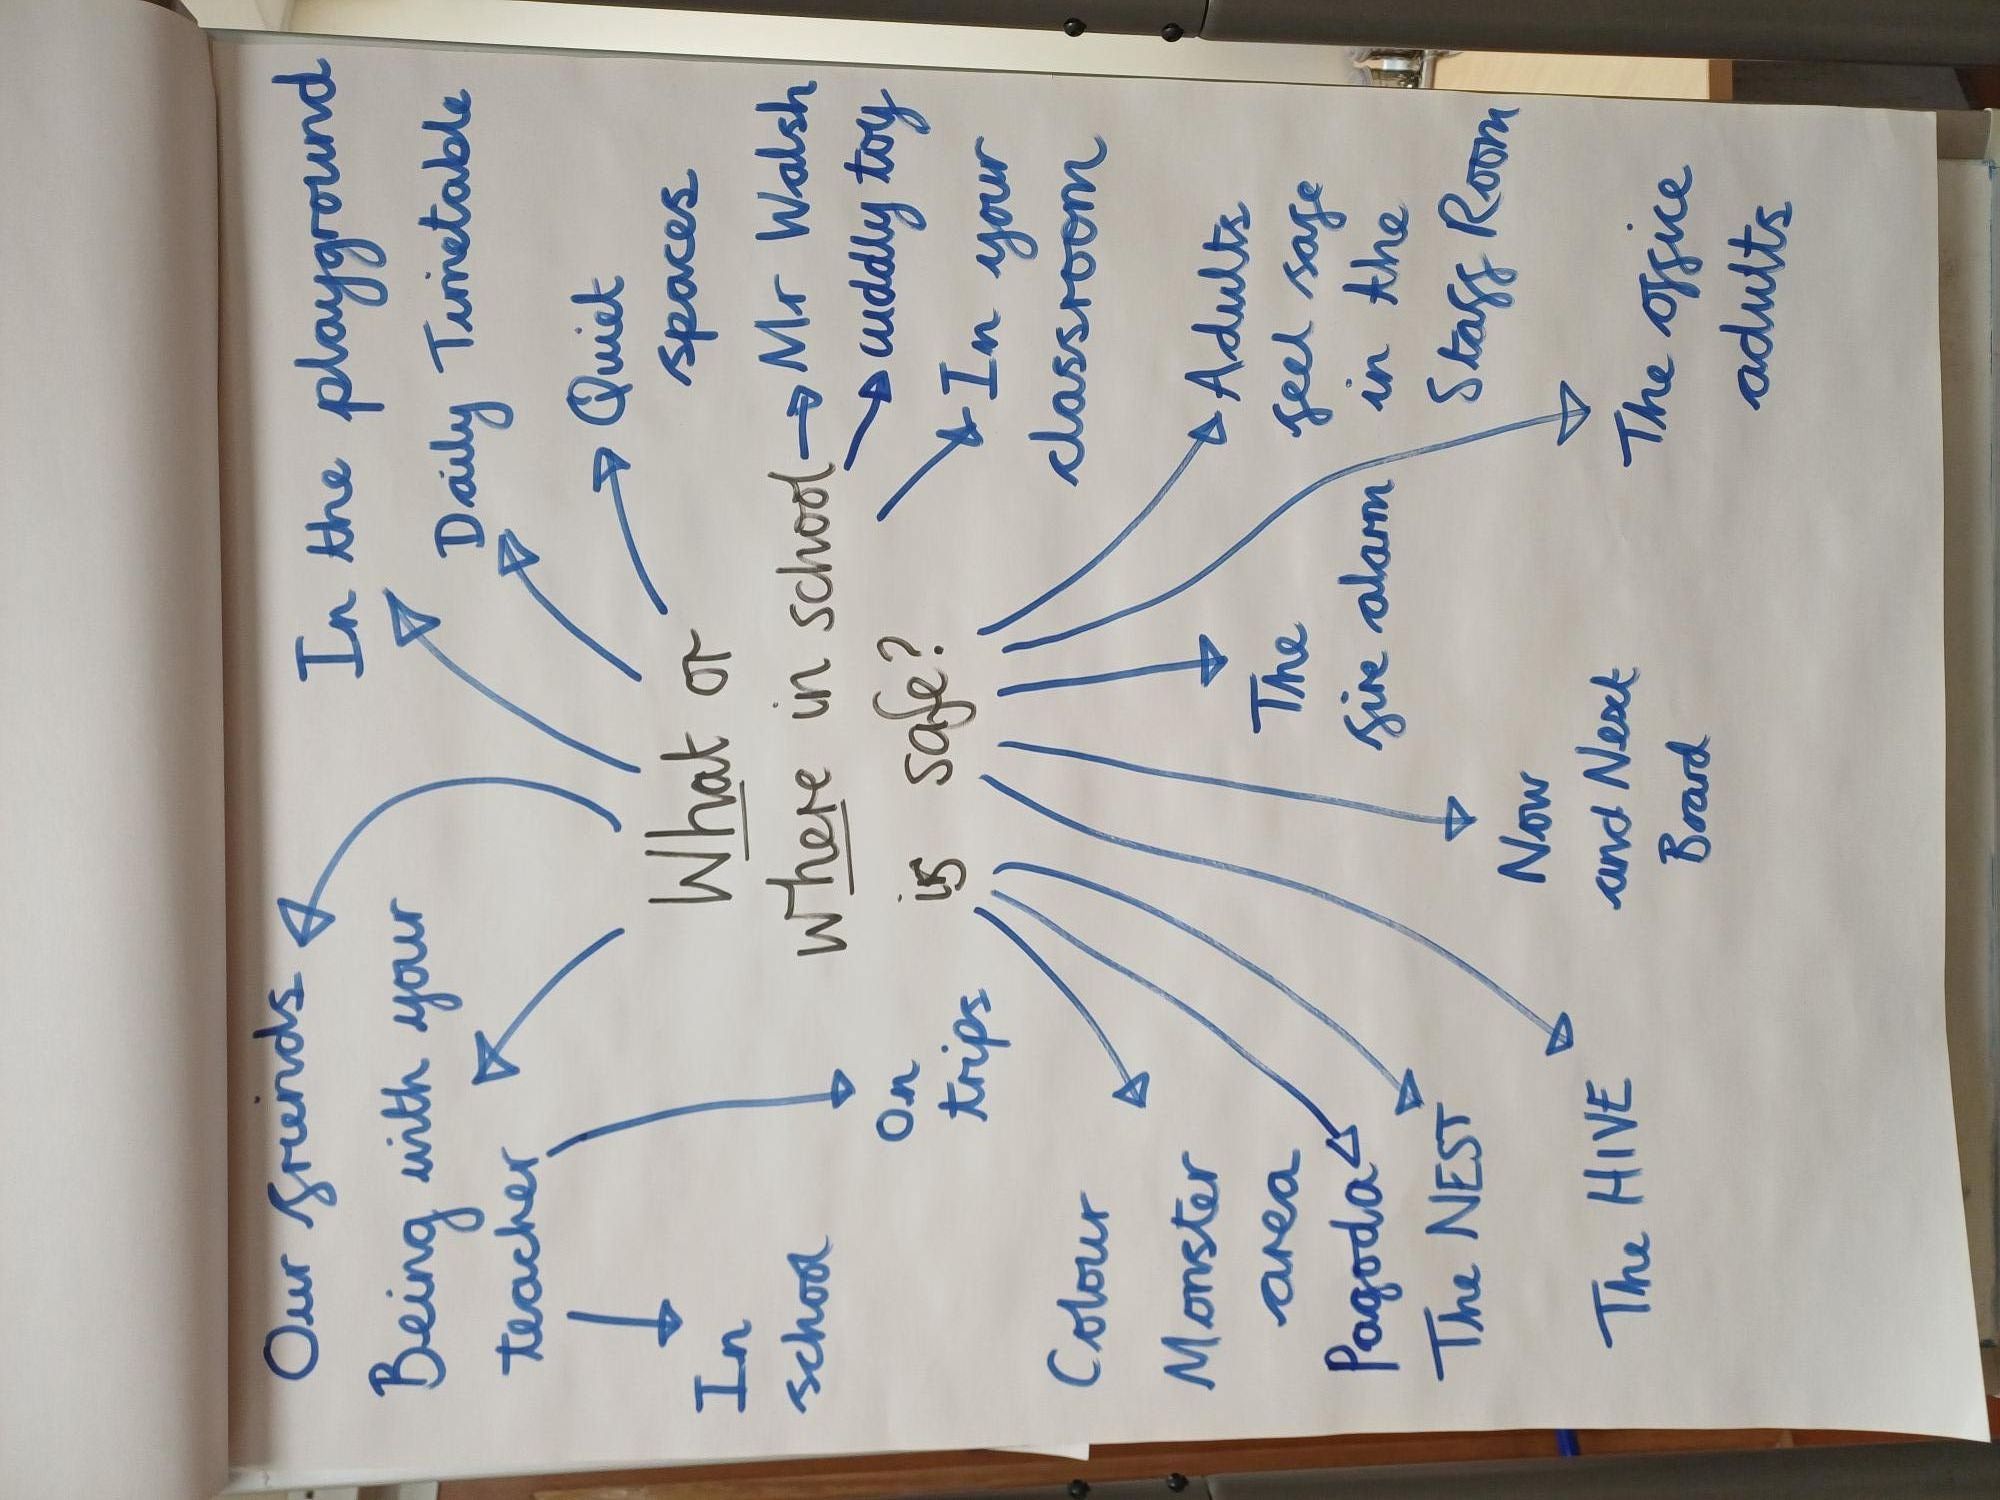 Our friends
Being with your
teacher
In
school
On
trips
In the playground
Daily Timetable
Quiet
spaces
What or
where in school
is safe?
Mr Walsh
cuddly toy
In your
classroom
Adults
feel safe
in the
Staff Room
The office
adults
The
fire alarm
Now
and Next
Board
The HIVE
The NEST
Pagoda
Colour
Monster
area